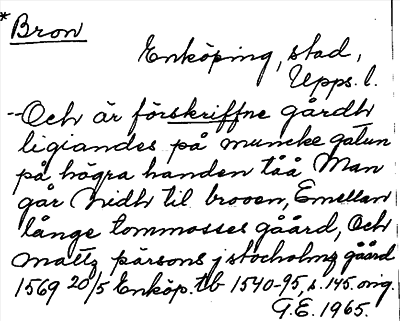 * Bron
Enköping, stad,
Upps. l.
--Och är förskriffne gårdh
ligiandes på muncke gatun
på högra handen tåå Man
går Nidh til brooen, Emellan
långe tommosses gåård, Och
mattz pärsons j stocholmz gåård
1569 20/5 Enköp. tb 1540-95, s. 145 orig.
G.E. 1965.